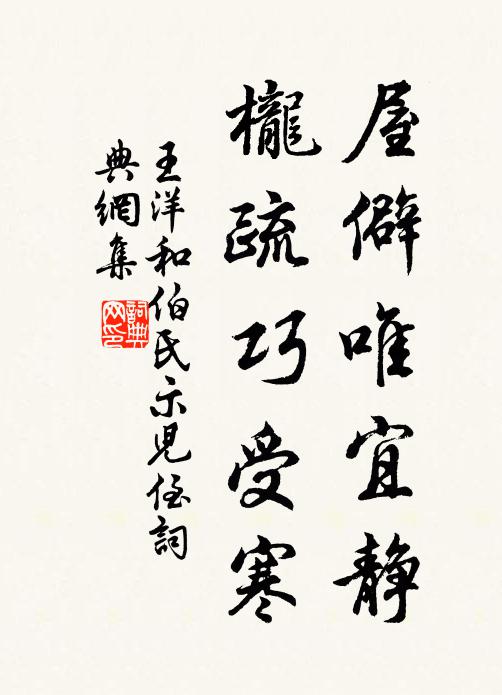 屋僻唯宜静
櫳疏巧受寒
王洋和伯氏示児侄詞
典網集
詞典網印